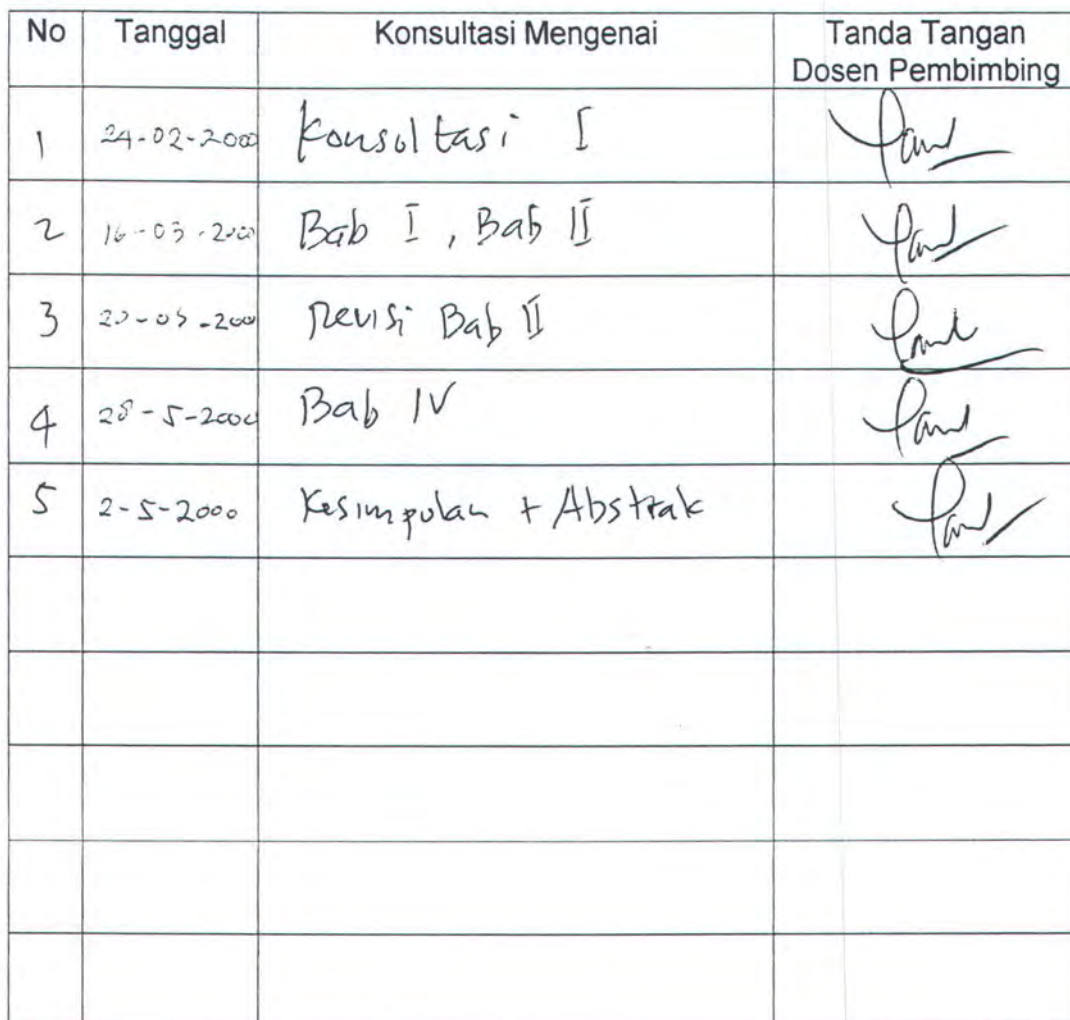 No Tanggal Konsultasi Mengenai Tanda Tangan
Dosen Pembimbing
1 24-02-2000 Konsultasi I
2 16-03-2000 Bab I, Bab II
3 Revisi Bab II
4 28-5-2000 Bab IV
5 2-5-2000 Kesimpulan + Abstrak